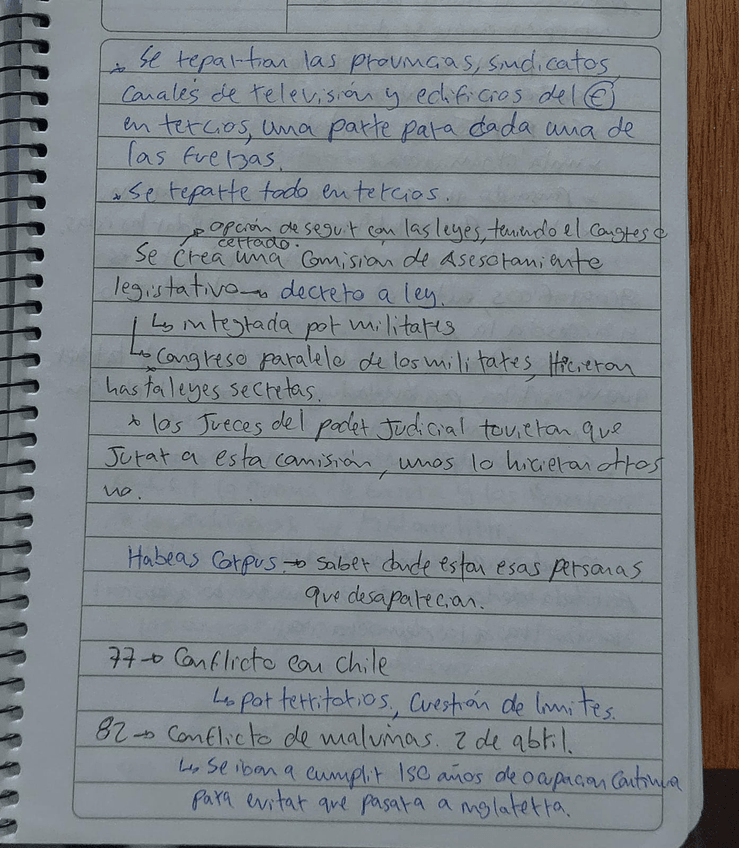 * Se repartian las provincias, sindicatos,
canales de televisión y edificios del Ⓔ
en tercios, una parte para cada una de
las fuerzas.
* Se reparte todo en tercios.
→ opción de seguir con las leyes, teniendo el congreso
cerrado.
Se crea una Comisión de Asesoramiento
legislativo → decreto a ley.
↳ integrada por militares
↳ Congreso paralelo de los militares, Hicieron
hasta leyes secretas.
* los Jueces del poder Judicial tuvieron que
Jurar a esta comisión, unos lo hicieron otros
no.
Habeas Corpus → saber donde estan esas personas
que desaparecian.
77 → Conflicto con Chile
↳ por territorios, Cuestión de limites.
82 → Conflicto de malvinas. 2 de abril.
↳ Se iban a cumplir 150 años de ocupacion Continua
para evitar que pasara a inglaterra.